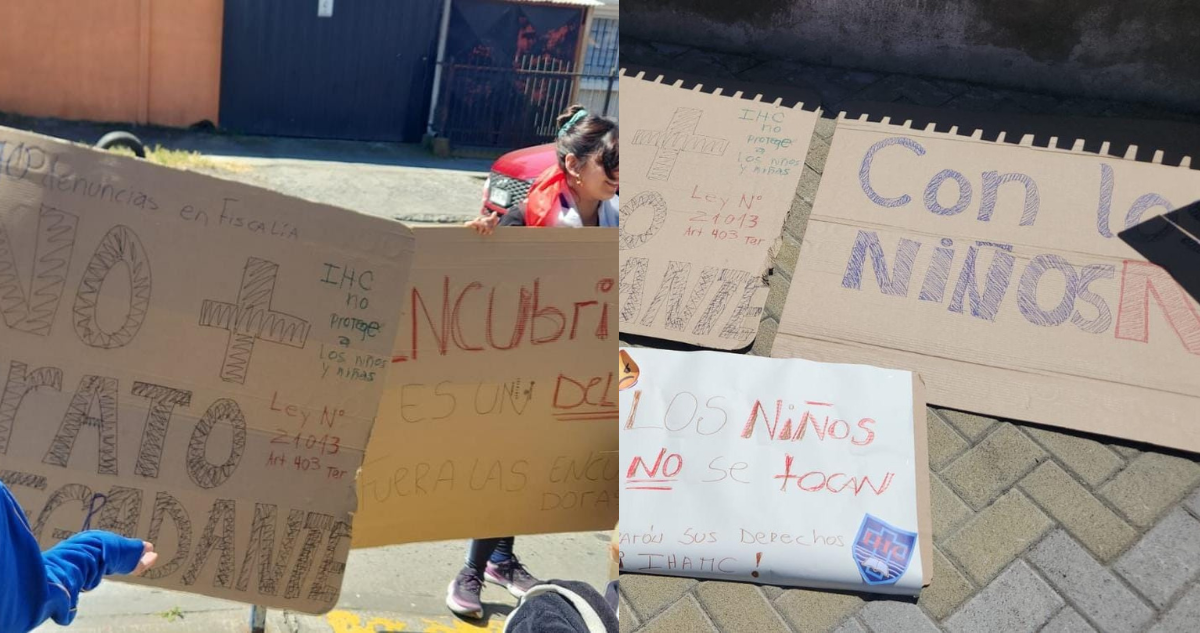 denuncias en Fiscalía
NO +
IHC
no
protege
a
los niños
y niñas
RATO
Ley N°
21.013
Art 403 Ter
DEGRADANTE
ENCUbri
ES UN DEL
FUERA LAS ENCU
DORAS
IHC
no
protege
a
los niños
y niñas
+
O
Ley N°
21.013
Art 403 Ter
ANTE
Con lo
NIÑOS N
LOS NIÑOS
NO se tocan
Sus Derechos
IHAMC!